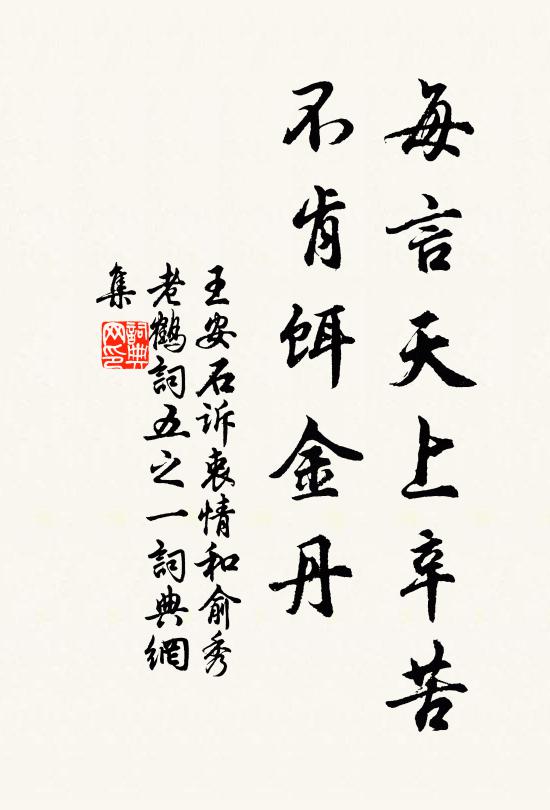 每言天上辛苦
不肯餌金丹
王安石诉衷情和俞秀
老鶴詞五之一詞典網
集
詞典
网印